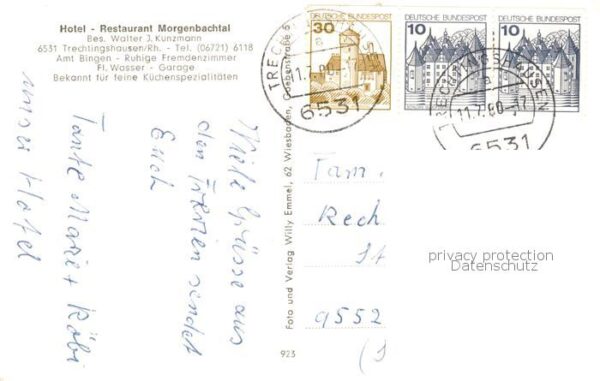 Hotel - Restaurant Morgenbachtal
Bes. Walter J. Kunzmann
6531 Trechtingshausen/Rh. - Tel. (06721) 6118
Amt Bingen - Ruhige Fremdenzimmer
Fl. Wasser - Garage
Bekannt für feine Küchenspezialitäten
Viele Grüsse aus
den Ferien sendet
Euch
Tante Marie + Köbi
unser Hotel
Foto und Verlag Willy Emmel, 62 Wiesbaden, Goebenstraße 6
923
30
10
DEUTSCHE BUNDESPOST
10
DEUTSCHE BUNDESPOST
6531
TRECHTINGSHAUSEN
11.7.80-17
6531
Fam.
Rech
St
9552
privacy protection
Datenschutz